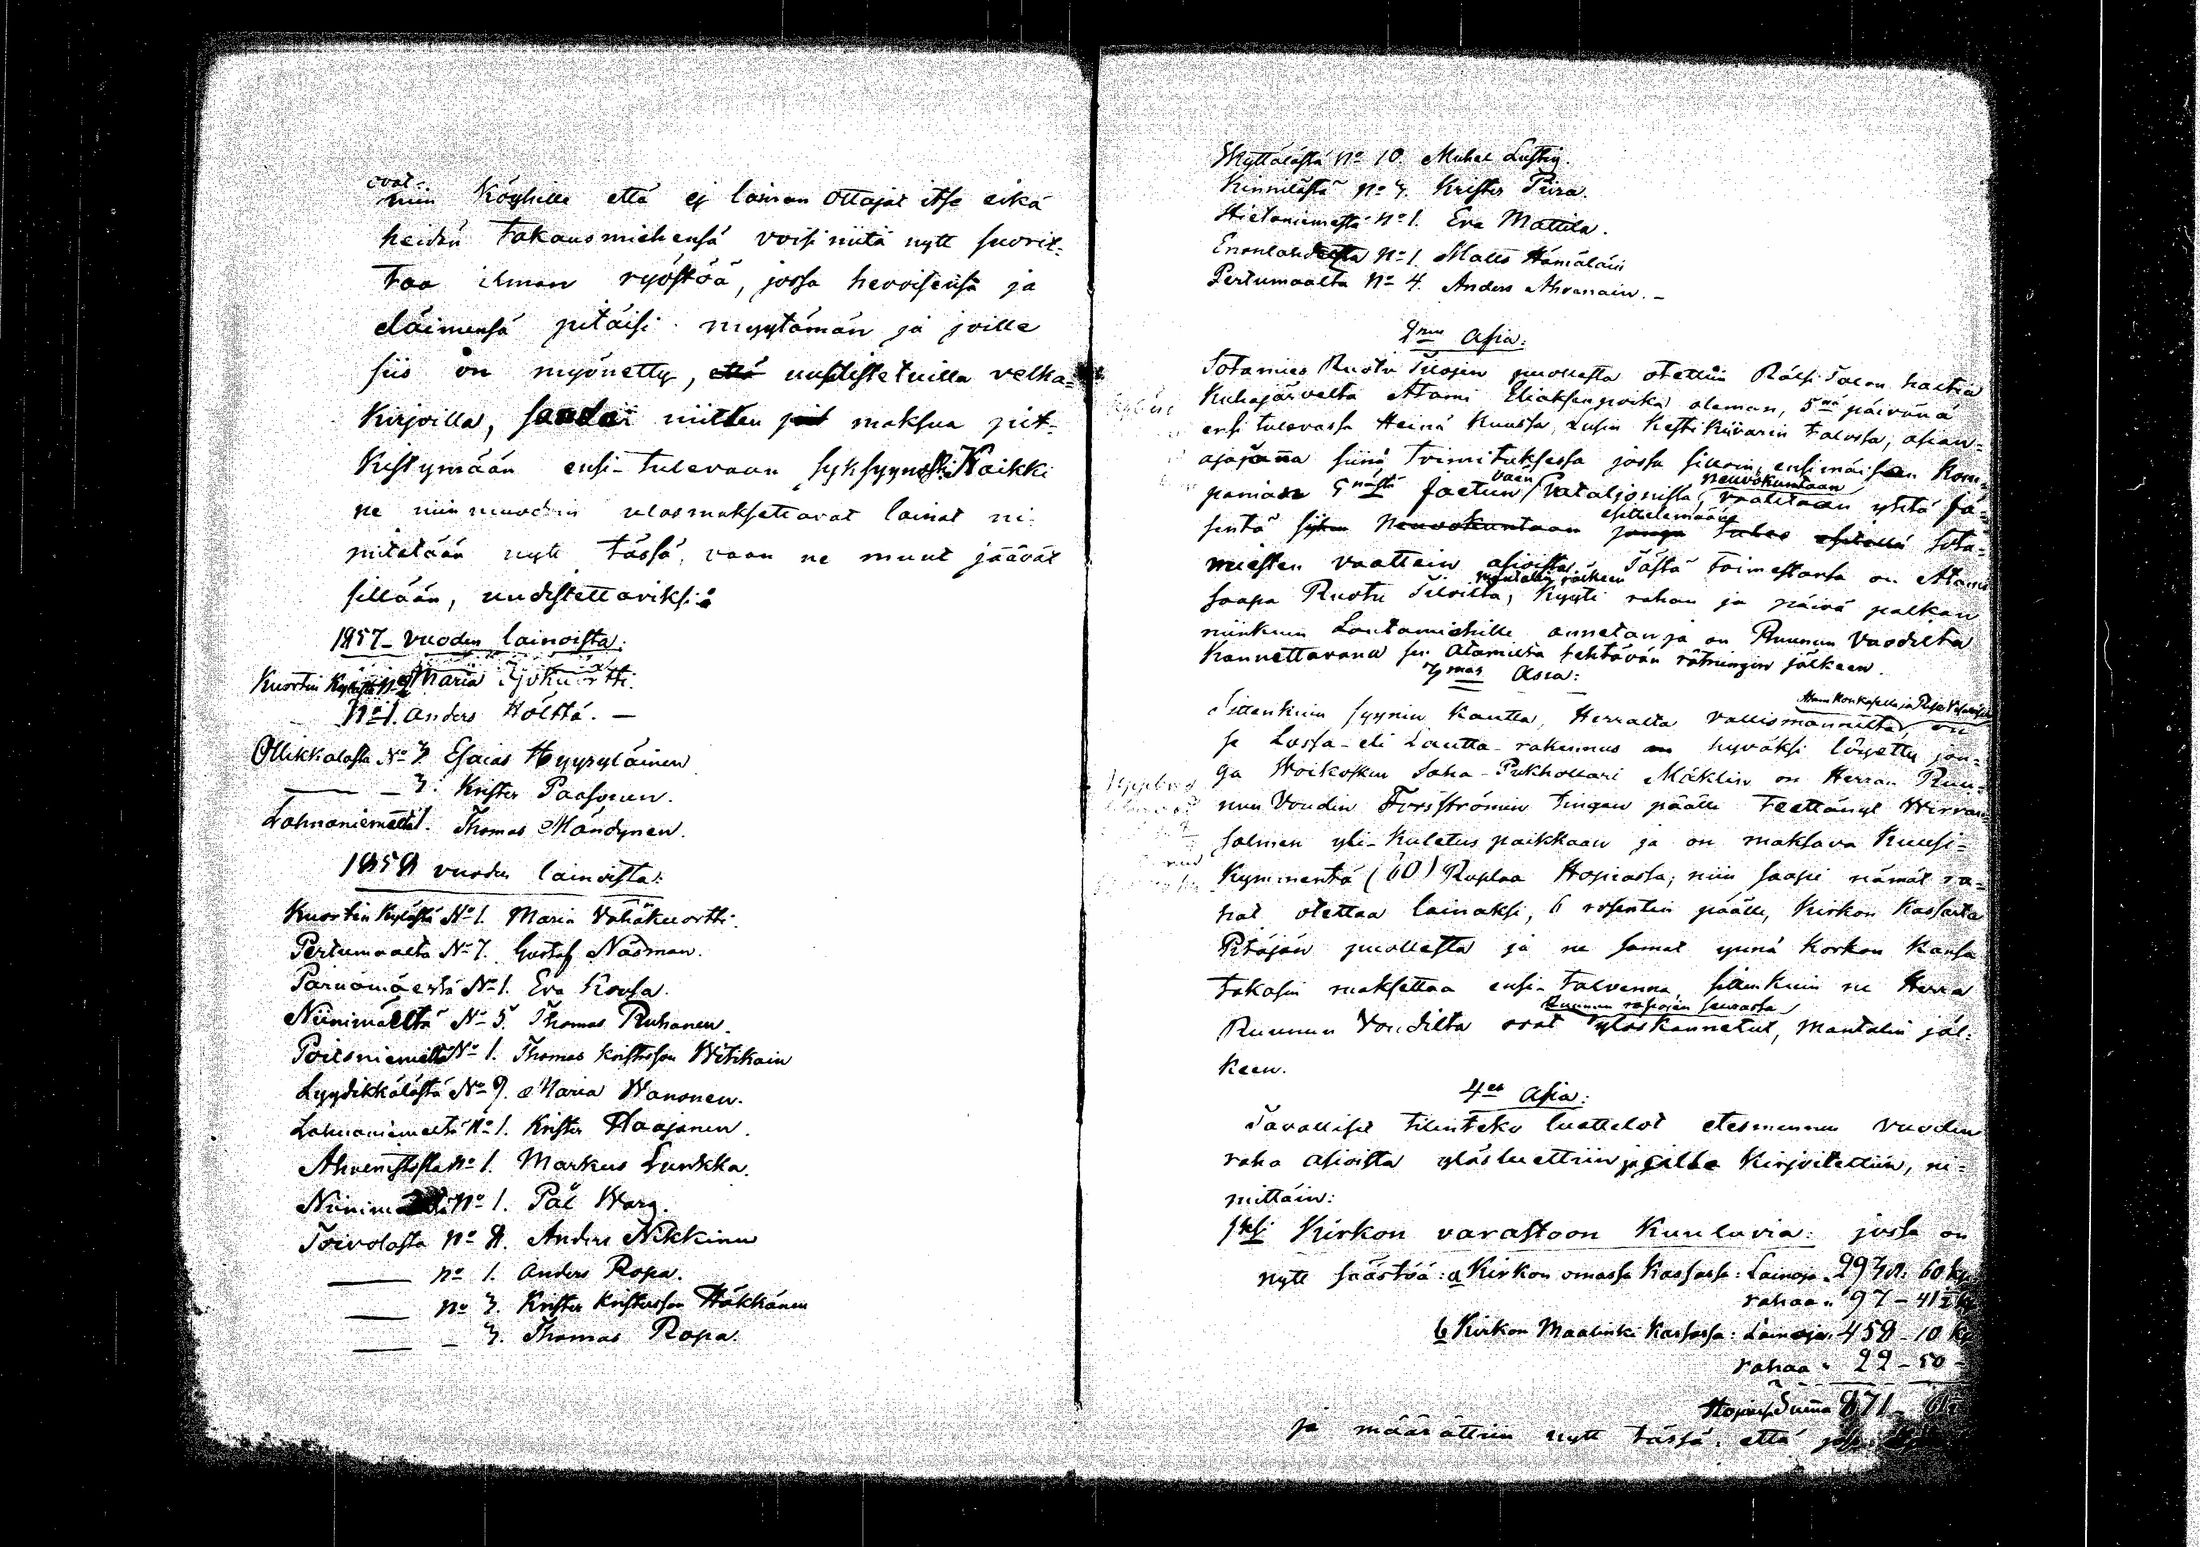 ovat
niin köyhille että ej lainan ottajat itse eikä
heidän takausmiehensä voisi niitä nytt suorit-
taa ilman ryöstöä, jossa hevoisensa ja
eläimensä pitäisi myytämän ja joille
siis on myönetty, että uudistetuilla velka-
kirjoilla, saada niitten maksua pit-
kistymään ensi-tulevaan syksyyn. Kaikki
ne niin muodoin ulosmaksettavat lainat ni-
mitetään nytt tässä, vaan ne muut jäävät
sillään, uudistettaviksi:
1857 vuoden lainoista:
Kuortin Kylästä No 2 Maria Ijokuortti.
No 1. Anders Hölttä. —
Ollikkalasta No 3 Esaias Hyyryläinen
— — 3. Krister Paasonen.
Lahnaniemeltä 1. Thomas Mändynen.
1858 vuoden lainoista:
Kuortin Kylästä No 1. Maria Vähäkuortti.
Pertumaalta No 7. Gustaf Näsman.
Pärnämäestä No 1. Eva Kousa.
Niinimäeltä No 5. Thomas Ruhanen.
Poitsniemeltä No 1. Thomas Kristersson Witikain
Lyydikkälästä No 9. Maria Wanonen.
Lahnaniemeltä No 1. Krister Haajanen.
Ahvenistosta No 1. Markus Lunkka.
No 1. Pål Warg.
Toivolasta No 8. Anders Nikkinen
— No 1. Anders Ropa.
— No 3. Krister Kristersson Häkkänen
— — 3. Thomas Ropa.
Kyttälästä No 10. Mikel Lustig.
Kinnilästä No 3. Krister Piira.
Hietaniemestä No 1. Eva Mattila.
Enonlahdesta No 1. Matts Hämäläin
Pertumaalta No 4. Anders Ahvenain. —
2nen Asia:
Sotamies Ruotu Tilojen puolesta otettiin Rälsi Talon haltia
Kuhajärveltä Atami Eliaksenpoika oleman, 5nä päivänä
ensi tulevassa Heinä Kuussa, Lusin Kestikiivarin talossa, asian-
ajajana siinä toimituksessa jossa silloin, ensimäisen Kom-
vaen neuvokuntaan
panian 5nästä Jaetun/Pataljonista, vaalitaan yhtä Jä-
esittelemään
sentä siihen Neuvokuntaan jonga tulee esitellä sota-
miesten vaattein asioista. Tästä toimestansa on Atami
mantalin jälkeen
saapa Ruotu Tiloilta, Kyyti rahan ja päivä palkan
niinkuin Lautamiehille annetan ja on Ruunun Voudilta
kannettavana sen Atamilta tehtävän rätningin jälkeen.
3mas Asia:
Sittenkuin syynin kautta, Herralta Vallismannilta, on
se Lossa-eli Lautta-rakennus hyväksi löyetty jon-
ga Woikosken Saha-Pukhollari Mäklin on Herran Ruu-
nun Voudin Forsströmin tingan päälle teettänyt Wirran-
salmen yli-kuletus paikkaan ja on maksava Kuusi-
kymmentä (60) Ruplaa Hopiassa; niin saapi nämät ra-
hat otettaa lainaksi, 6 rosentin päälle, Kirkon Kassasta
Pitäjän puollesta ja ne samat ynnä korkon kansa
takasin maksettaa ensi-talvenna sittenkuin ne Herra
Ruunun rahojen seurassa
Ruunun Voudilta ovat ylöskannetut, Mantalin jäl-
keen.
4es Asia:
Tavalliset tilinteko luettelot etesmennen vuoden
raha asioista ylösluettiin ja alle kirjoitettiin, ni-
mittäin:
1ksi Kirkon varastoon Kuuluvia: jossa on
nytt säästöä: a Kirkon omassa Kassassa: Lainoja. 293 R. 60 kp
rahaa " 97 - 41½ kp
b Kirkon Maalinki Kassassa: Lainoja. 458 - 10 kp
rahaa " 22 - 50 -
Hopias Summa 871 -
ja määrättiin nytt tässä: että